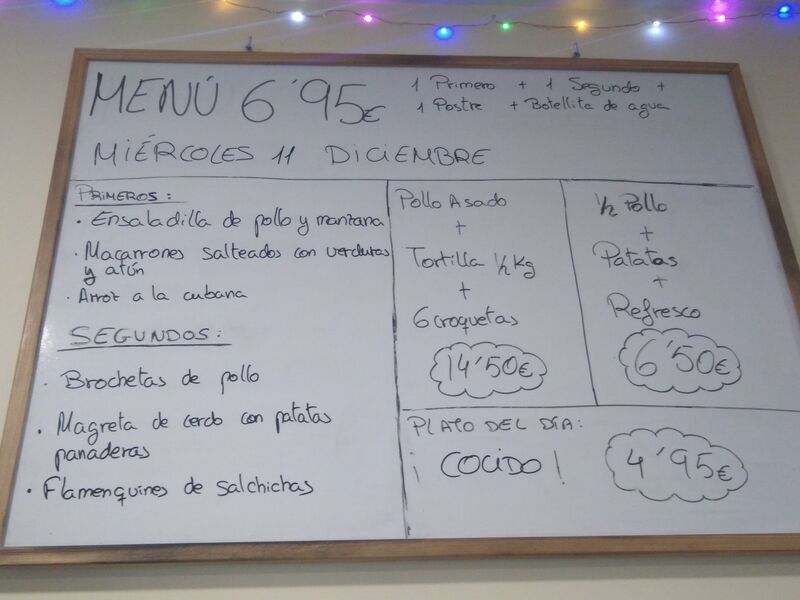 MENÚ 6'95€
1 Primero + 1 Segundo +
1 Postre + Botellita de agua
MIÉRCOLES 11 DICIEMBRE
PRIMEROS:
• Ensaladilla de pollo y manzana
• Macarrones salteados con verduras
y atún
• Arroz a la cubana
SEGUNDOS:
• Brochetas de pollo
• Magreta de cerdo con patatas
panaderas
• Flamenquines de salchichas
Pollo Asado
+
Tortilla 1/2 Kg
+
6 croquetas
14'50€
1/2 Pollo
+
Patatas
+
Refresco
6'50€
PLATO DEL DÍA:
¡COCIDO!
4'95€